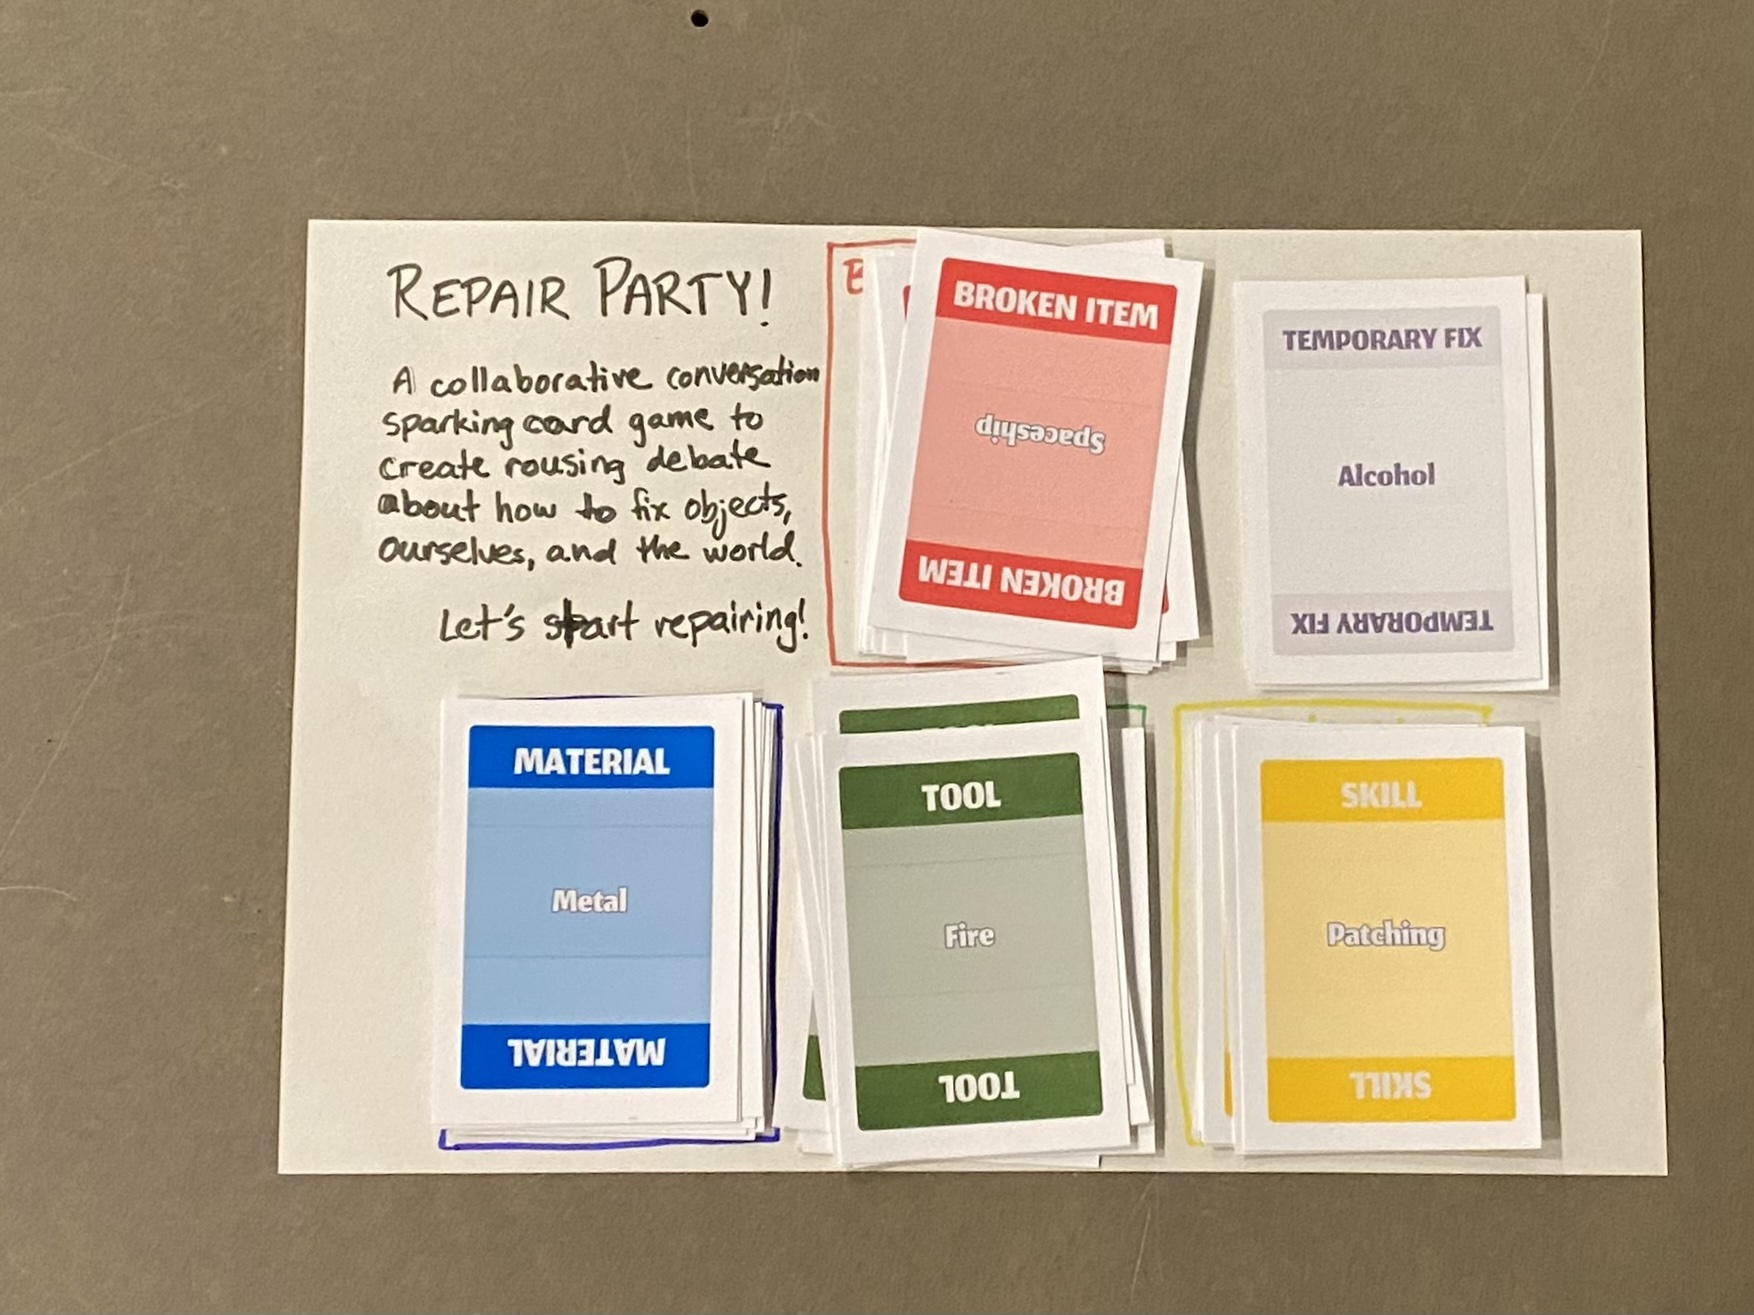 REPAIR PARTY!
A collaborative conversation
sparking card game to
create rousing debate
about how to fix objects,
ourselves, and the world.
Let's start repairing!
BROKEN ITEM
Spaceship
BROKEN ITEM
TEMPORARY FIX
Alcohol
TEMPORARY FIX
MATERIAL
Metal
MATERIAL
TOOL
Fire
TOOL
SKILL
Patching
SKILL